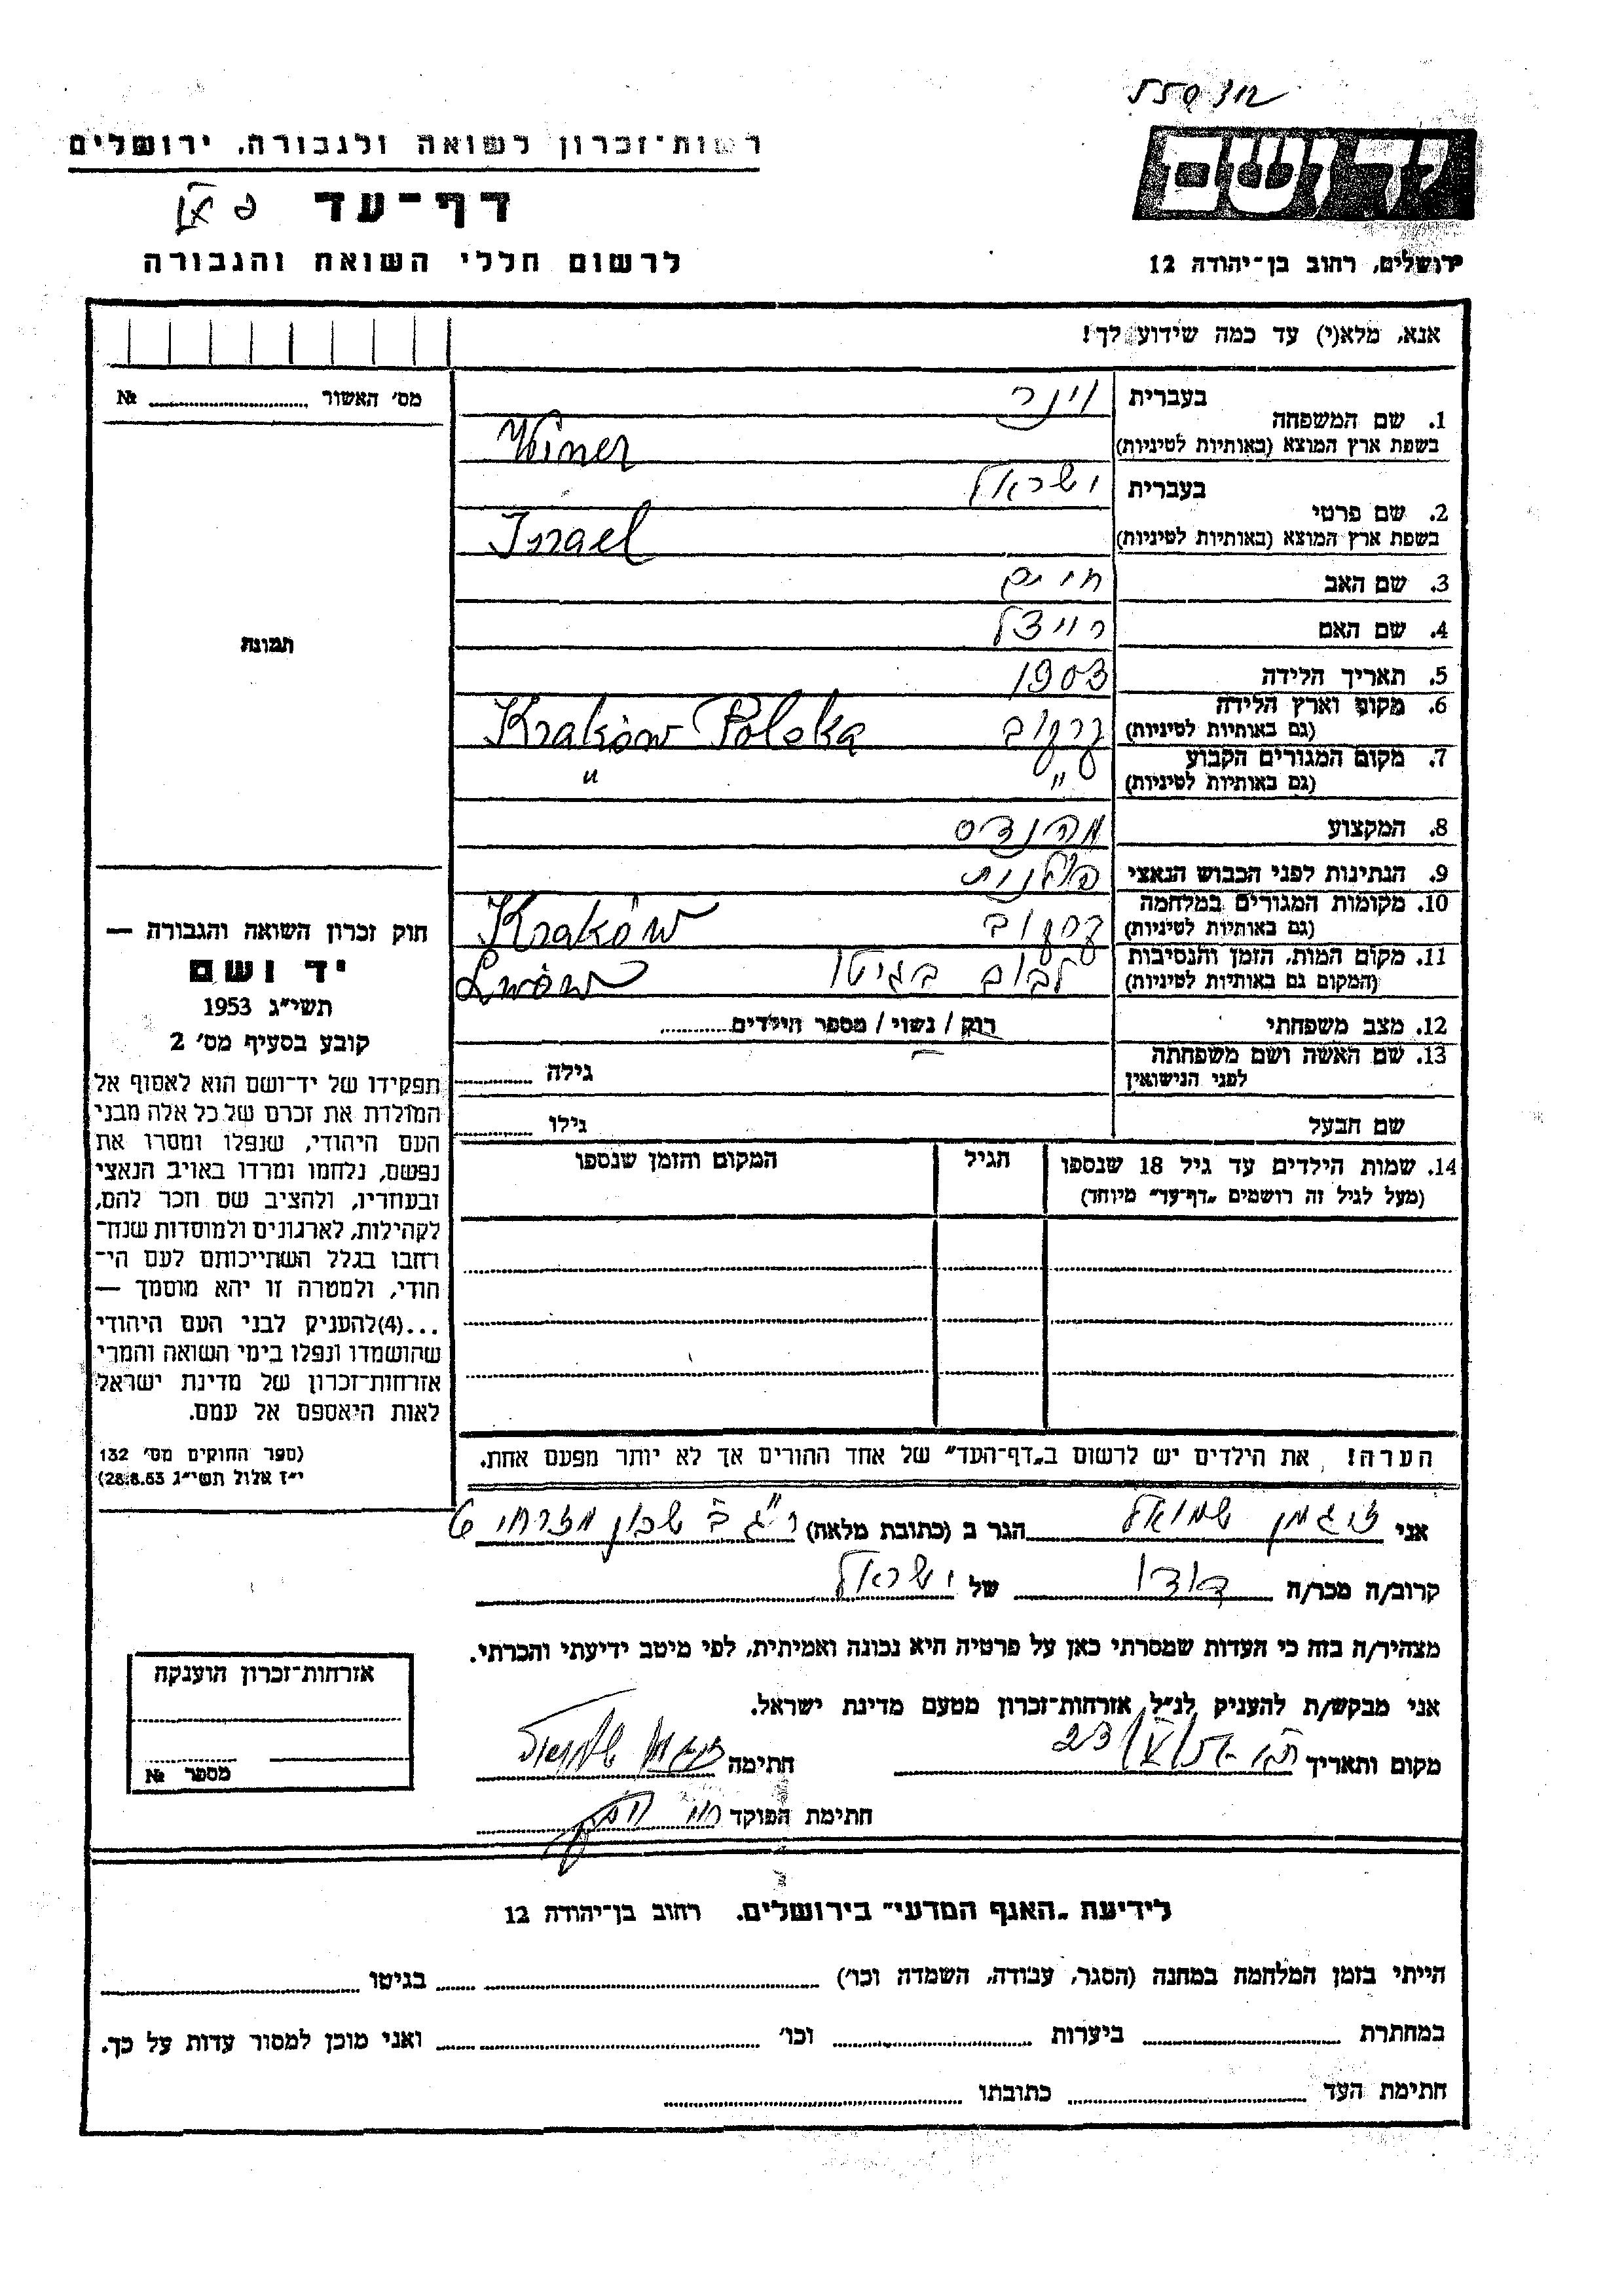 רשות-זכרון לשואה ולגבורה, ירושלים
דף-עד
לרשום חללי השואה והגבורה
יד ושם
ירושלים, רחוב בן-יהודה 12
אנא, מלא(י) עד כמה שידוע לך!
מס' האשור № ........
תמונה
1. שם המשפחה בעברית וינר
בשפת ארץ המוצא (באותיות לטיניות) Winer
2. שם פרטי בעברית ישראל
בשפת ארץ המוצא (באותיות לטיניות) Israel
3. שם האב חיים
4. שם האם רייצל
5. תאריך הלידה 1903
6. מקום וארץ הלידה (גם באותיות לטיניות) קרקוב Kraków Polska
7. מקום המגורים הקבוע (גם באותיות לטיניות) " "
8. המקצוע מהנדס
9. הנתינות לפני הכבוש הנאצי פולנית
10. מקומות המגורים במלחמה (גם באותיות לטיניות) קרקוב Kraków
11. מקום המות, הזמן והנסיבות (המקום גם באותיות לטיניות) לבוב בגיטו Lwów
12. מצב משפחתי רוק / נשוי / מספר הילדים ........
13. שם האשה ושם משפחתה לפני הנישואין גילה ........
שם הבעל גילו ........
14. שמות הילדים עד גיל 18 שנספו הגיל המקום והזמן שנספו
(מעל לגיל זה רושמים "דף-עד" מיוחד)
הערה! את הילדים יש לרשום ב"דף-העד" של אחד ההורים אך לא יותר מפעם אחת.
חוק זכרון השואה והגבורה —
יד ושם
תשי"ג 1953
קובע בסעיף מס' 2
תפקידו של יד-ושם הוא לאסוף אל
המולדת את זכרם של כל אלה מבני
העם היהודי, שנפלו ומסרו את
נפשם, נלחמו ומרדו באויב הנאצי
ובעוזריו, ולהציב שם וזכר להם,
לקהילות, לארגונים ולמוסדות שנח-
רבו בגלל השתייכותם לעם הי-
הודי, ולמטרה זו יהא מוסמך —
...(4)להעניק לבני העם היהודי
שהושמדו ונפלו בימי השואה והמרי
אזרחות-זכרון של מדינת ישראל
לאות היאספם אל עמם.
(ספר החוקים מס' 132
י"ז אלול תשי"ג 28.8.53)
אני זיגמן שמואל הגר ב (כתובת מלאה) ר"ג שכון מזרחי
קרוב/ה מכר/ה דודו של ישראל
מצהיר/ה בזה כי העדות שמסרתי כאן על פרטיה היא נכונה ואמיתית, לפי מיטב ידיעתי והכרתי.
אני מבקש/ת להעניק לנ"ל אזרחות-זכרון מטעם מדינת ישראל.
מקום ותאריך חתימה זיגמן שמואל
חתימת הפוקד
אזרחות-זכרון הוענקה
מספר №
לידיעת "האגף המדעי" בירושלים, רחוב בן-יהודה 12
הייתי בזמן המלחמה במחנה (הסגר, עבודה, השמדה וכו') ........ בגיטו ........
במחתרת ........ ביערות ........ וכו' ........ ואני מוכן למסור עדות על כך.
חתימת העד ........ כתובתו ........